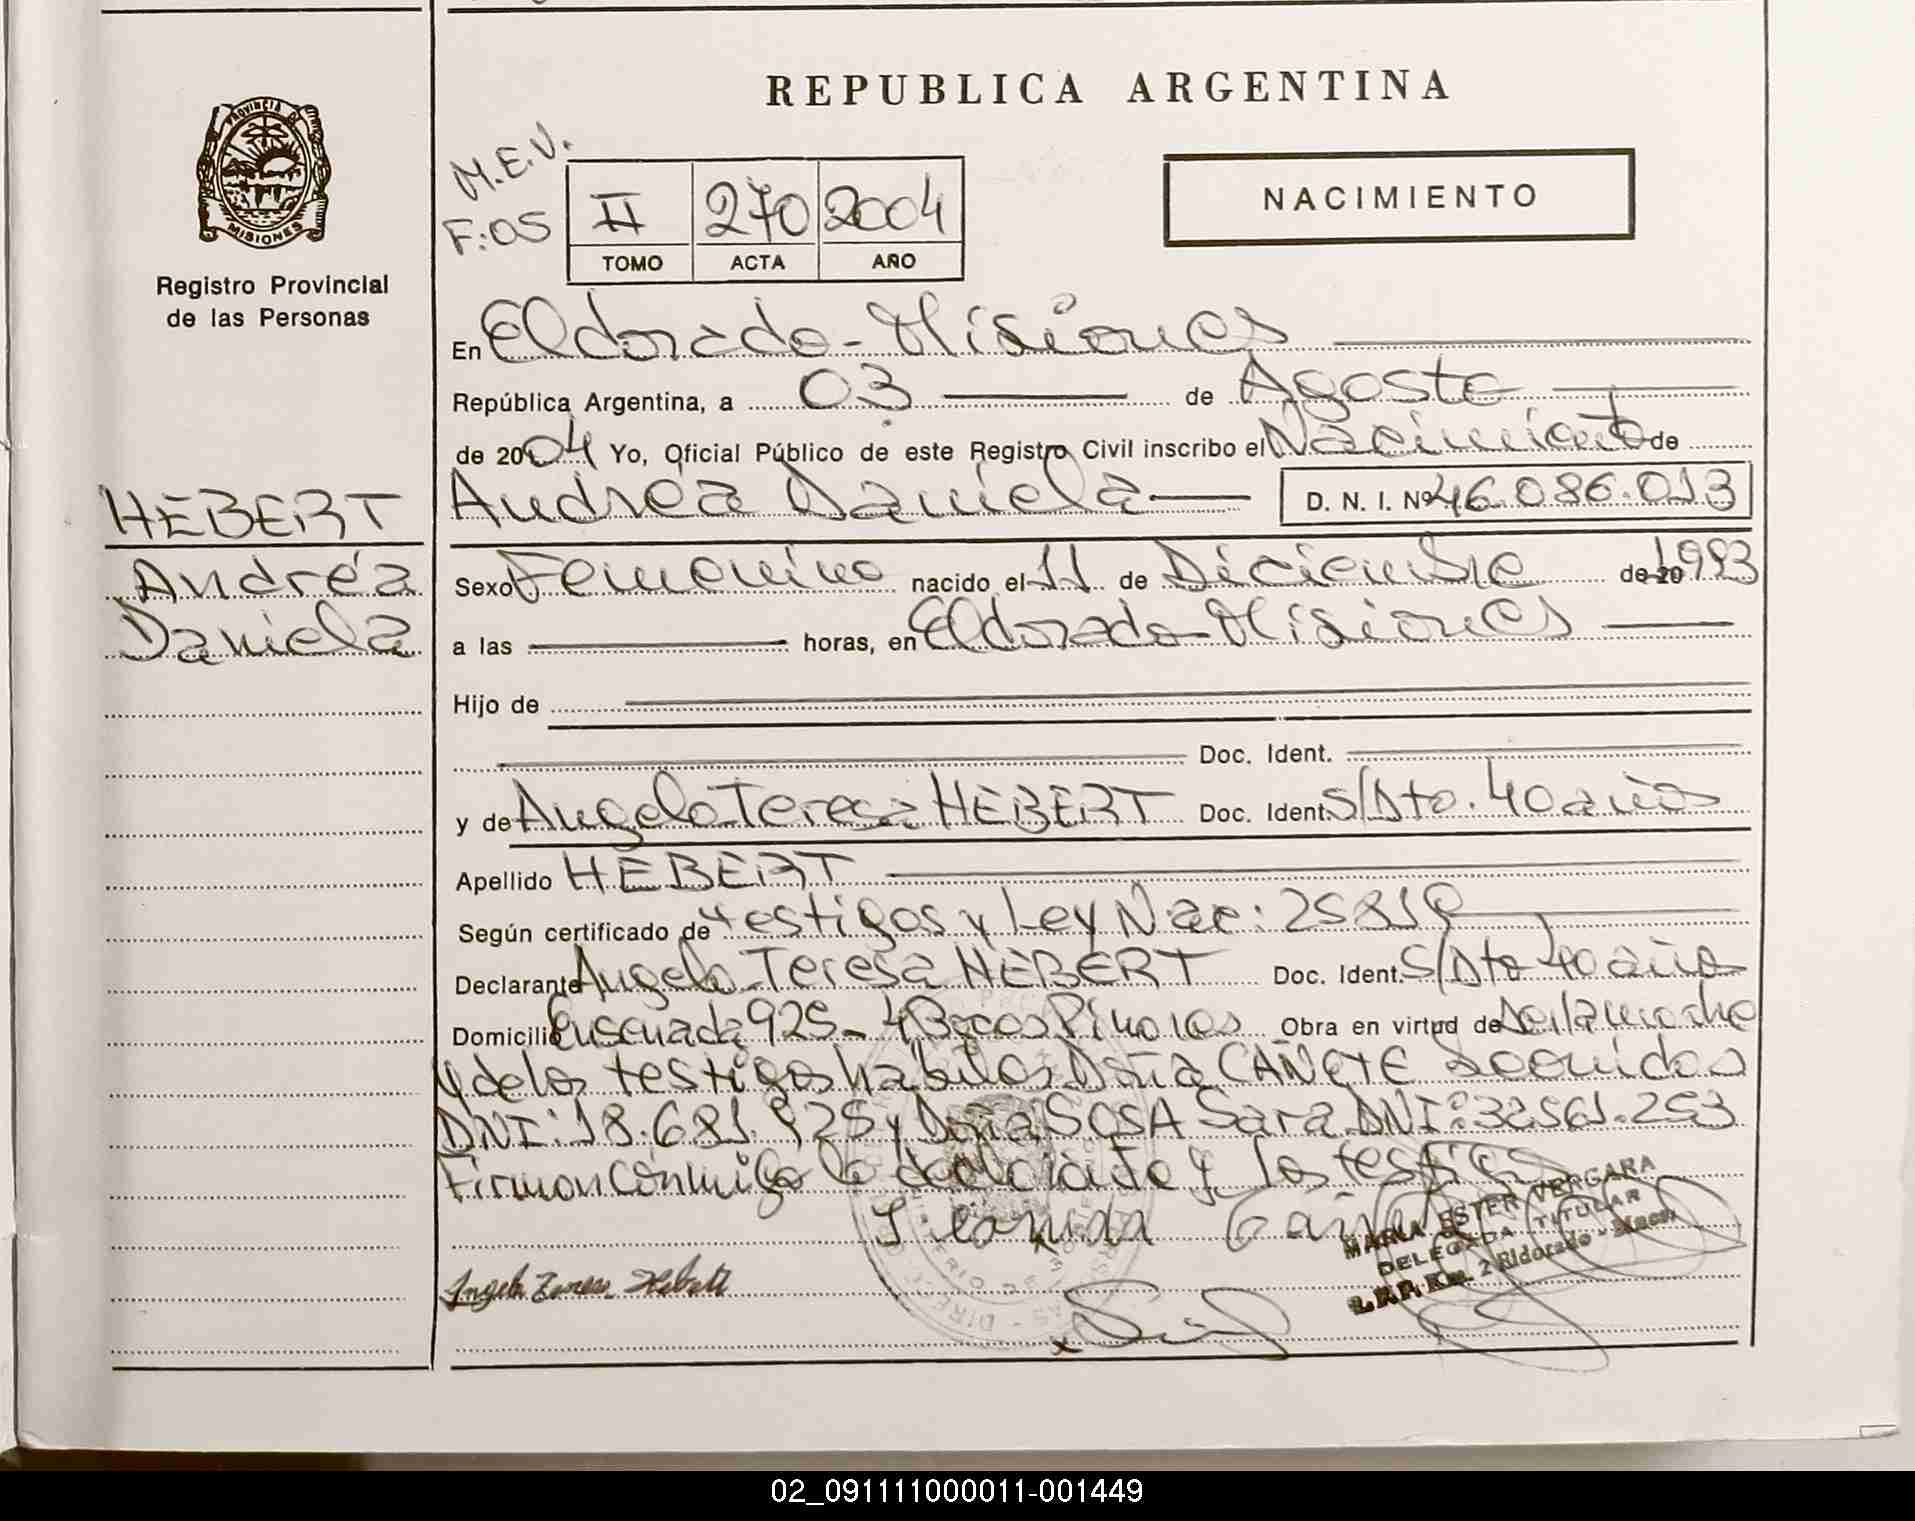 REPUBLICA ARGENTINA
PROVINCIA DE MISIONES
Registro Provincial
de las Personas
M.E.V.
F:05
II 270 2004
TOMO ACTA AÑO
NACIMIENTO
En Eldorado - Misiones
República Argentina, a 03 de Agosto
de 2004 Yo, Oficial Público de este Registro Civil inscribo el Nacimiento de
HEBERT
Andréa
Daniela
Andréa Daniela D. N. I. Nº 46.086.013
Sexo Femenino nacido el 11 de Diciembre de 20 1993
a las horas, en Eldorado - Misiones
Hijo de
Doc. Ident.
y de Angela Teresa HEBERT Doc. Ident. S/Dto. 40 años
Apellido HEBERT
Según certificado de testigos y Ley Nac: 25819
Declarante Angela Teresa HEBERT Doc. Ident. S/Dto 40 años
Domicilio Ensenada 925 - 4 Bocas Obra en virtud de
y de los testigos hábiles Doña CAÑETE
DNI: 18.681.925 y Doña SOSA Sara DNI: 32561.253
Firman conmigo la declarante y los testigos
MARIA ESTER VERGARA
DELEGADA TITULAR
R.P.P. Km. 2 Eldorado - Mnes.
Angela Teresa Hebert
02_091111000011-001449